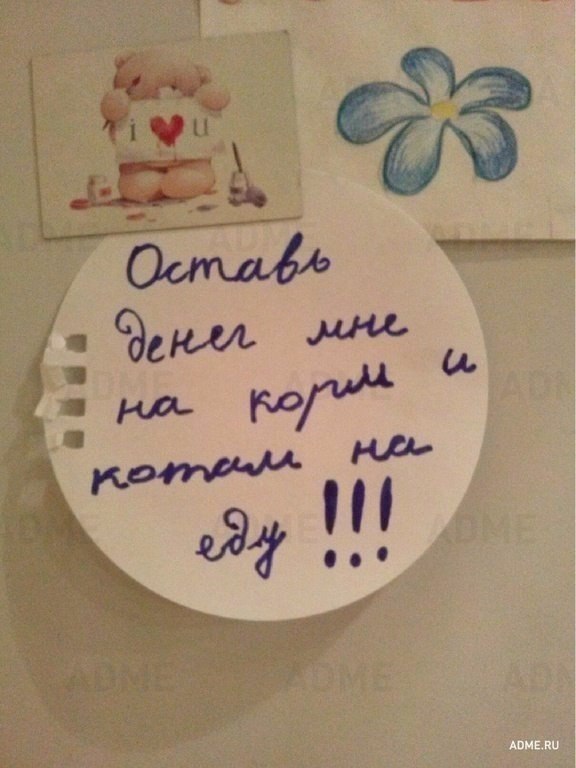 i ♥ u
Оставь
денег мне
на корм и
котам на
еду !!!
ADME.RU